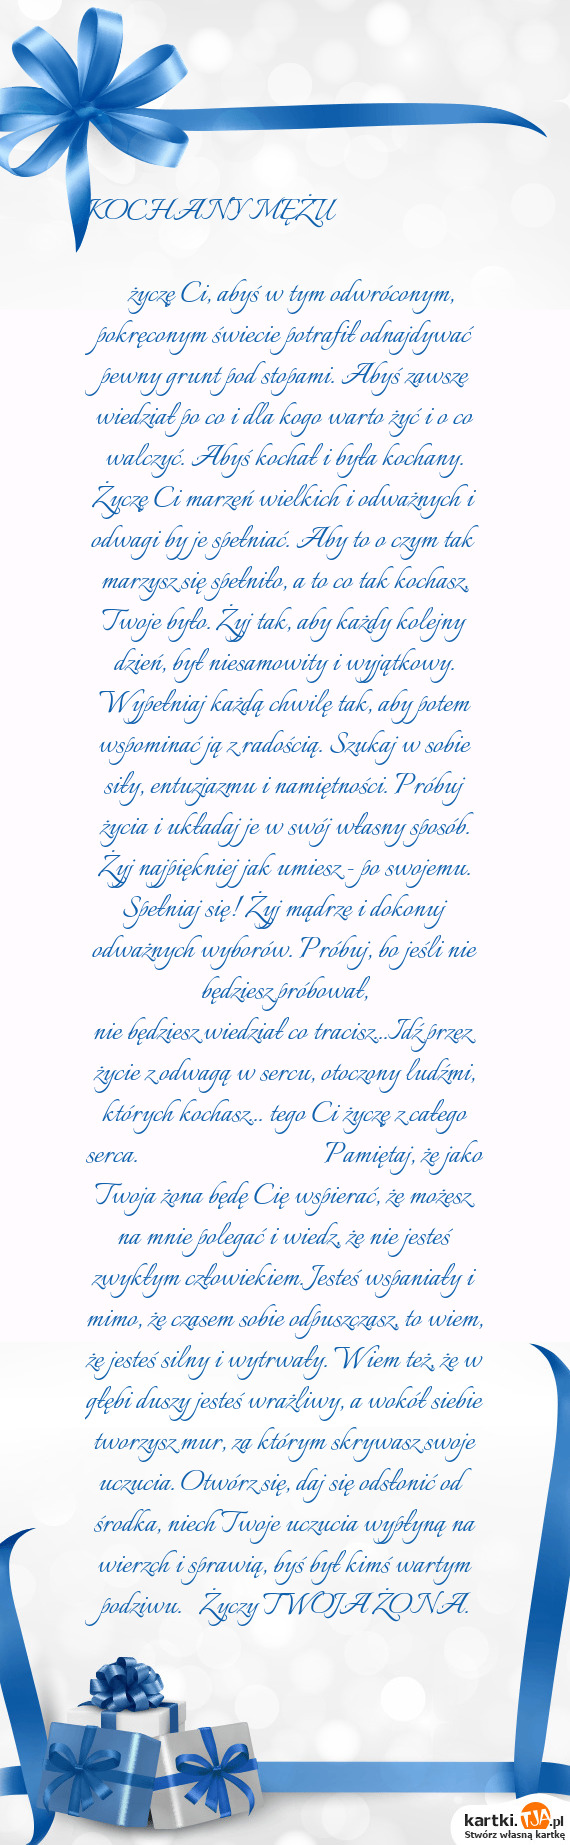 KOCHANY MĘŻU
życzę Ci, abyś w tym odwróconym,
pokręconym świecie potrafił odnajdywać
pewny grunt pod stopami. Abyś zawsze
wiedział po co i dla kogo warto żyć i o co
walczyć. Abyś kochał i była kochany.
Życzę Ci marzeń wielkich i odważnych i
odwagi by je spełniać. Aby to o czym tak
marzysz się spełniło, a to co tak kochasz,
Twoje było. Żyj tak, aby każdy kolejny
dzień, był niesamowity i wyjątkowy.
Wypełniaj każdą chwilę tak, aby potem
wspominać ją z radością. Szukaj w sobie
siły, entuzjazmu i namiętności. Próbuj
życia i układaj je w swój własny sposób.
Żyj najpiękniej jak umiesz - po swojemu.
Spełniaj się! Żyj mądrze i dokonuj
odważnych wyborów. Próbuj, bo jeśli nie
będziesz próbował,
nie będziesz wiedział co tracisz...Idź przez
życie z odwagą w sercu, otoczony ludźmi,
których kochasz... tego Ci życzę z całego
serca. Pamiętaj, że jako
Twoja żona będę Cię wspierać, że możesz
na mnie polegać i wiedz, że nie jesteś
zwykłym człowiekiem.Jesteś wspaniały i
mimo, że czasem sobie odpuszczasz, to wiem,
że jesteś silny i wytrwały. Wiem też, że w
głębi duszy jesteś wrażliwy, a wokół siebie
tworzysz mur, za którym skrywasz swoje
uczucia. Otwórz się, daj się odsłonić od
środka, niech Twoje uczucia wypłyną na
wierzch i sprawią, byś był kimś wartym
podziwu. Życzy TWOJA ŻONA.
kartki.TJA.pl
Stwórz własną kartkę